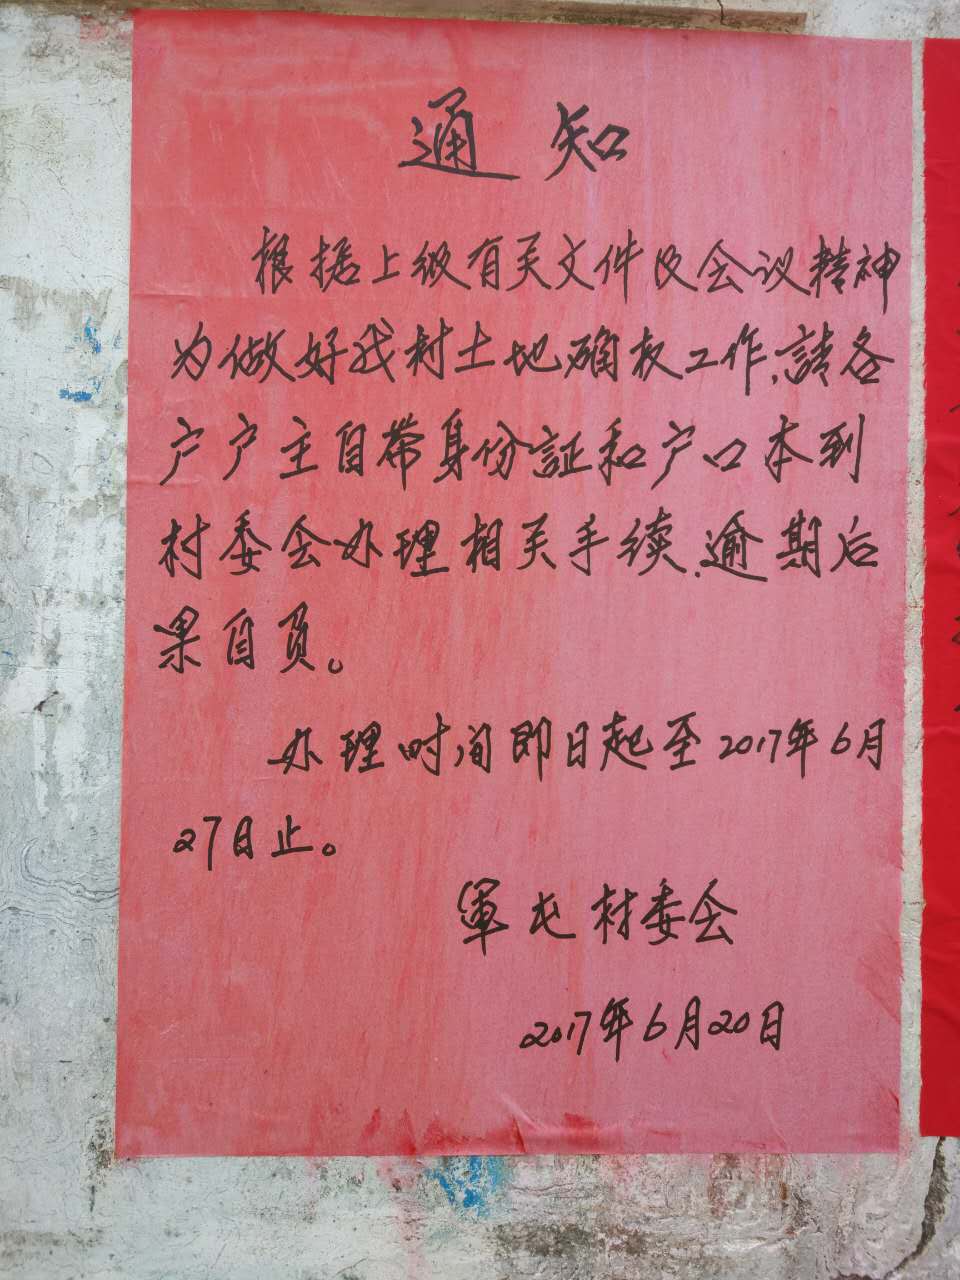 通知
根据上级有关文件及会议精神
为做好我村土地确权工作,請各
户户主自带身份証和户口本到
村委会办理相关手续.逾期后
果自负。
办理时间即日起至2017年6月
27日止。
軍屯村委会
2017年6月20日